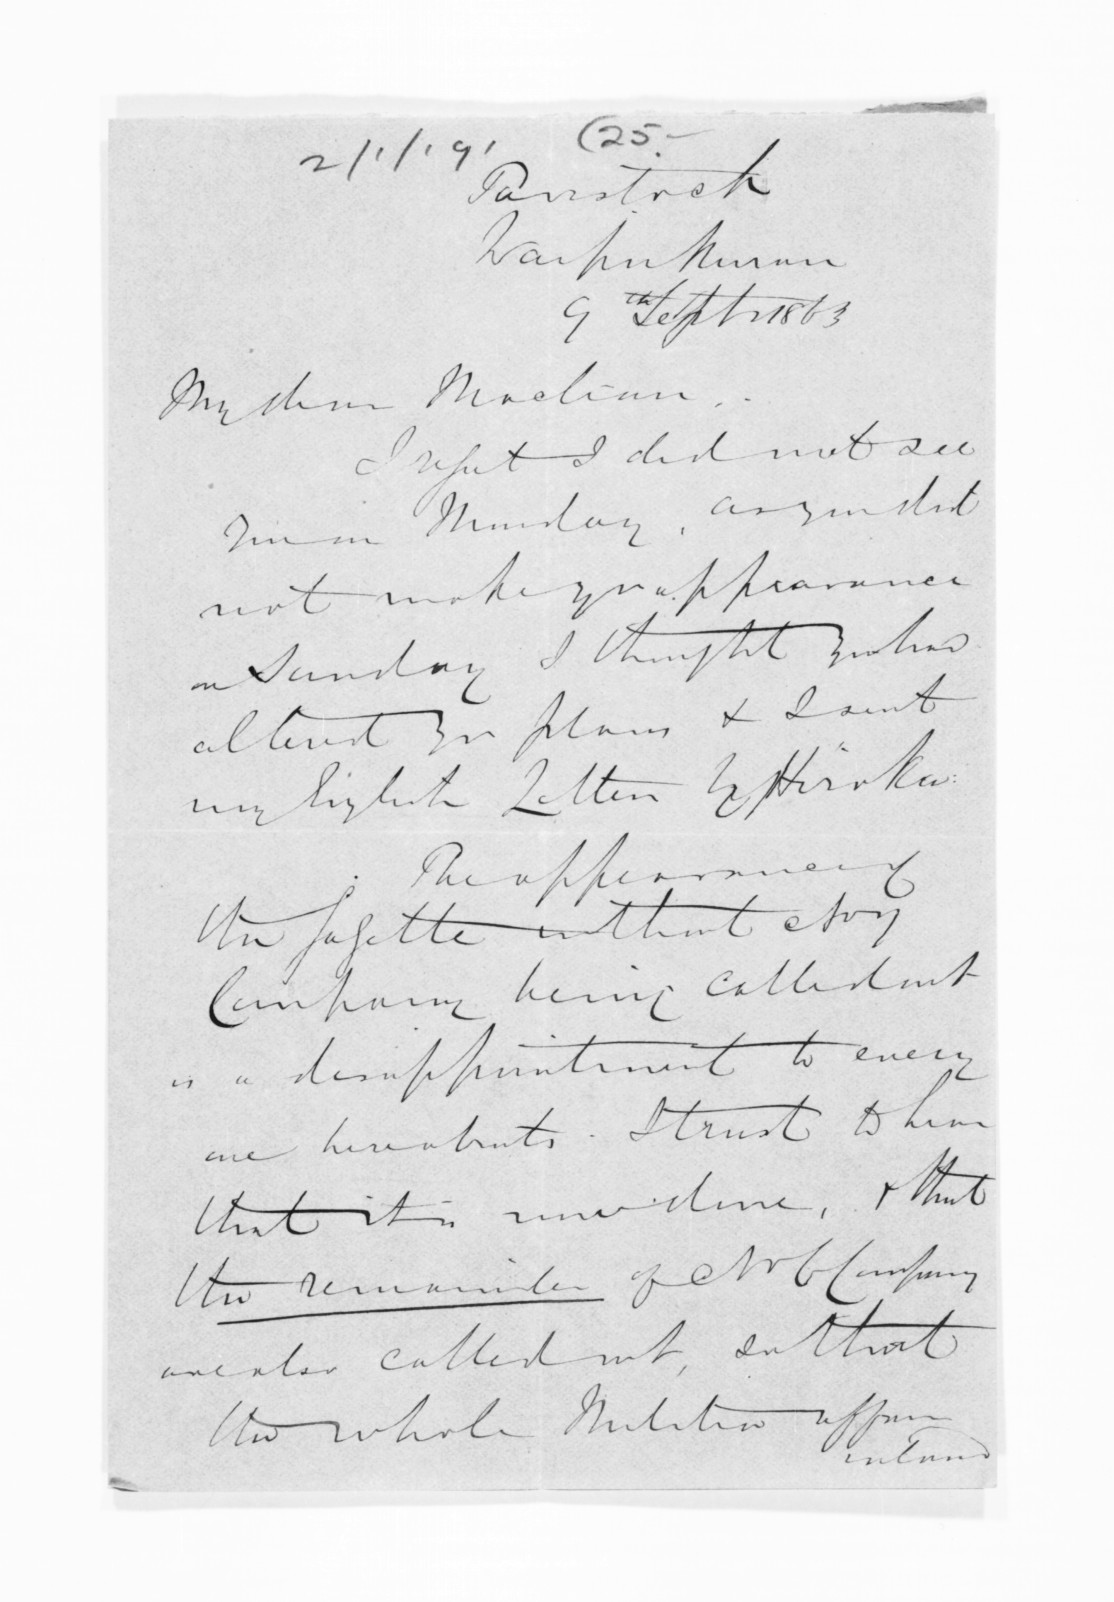 2/1/191
(25-
Tavistock
Waipukurau
9th Sept 1863
My dear Maclean,
I regret I did not see
you on Monday, as you did
not make yr appearance
on Sunday I thought you had
altered yr plans & I sent
my English Letters by Hiroka:
The appearance of
the Gazette without No 4
Company being called out
is a disappointment to every
one hereabouts. I trust to hear
that it is now done, & that
the remainder of No 6 Company
are also called out, so that
the whole Militia affair
inland